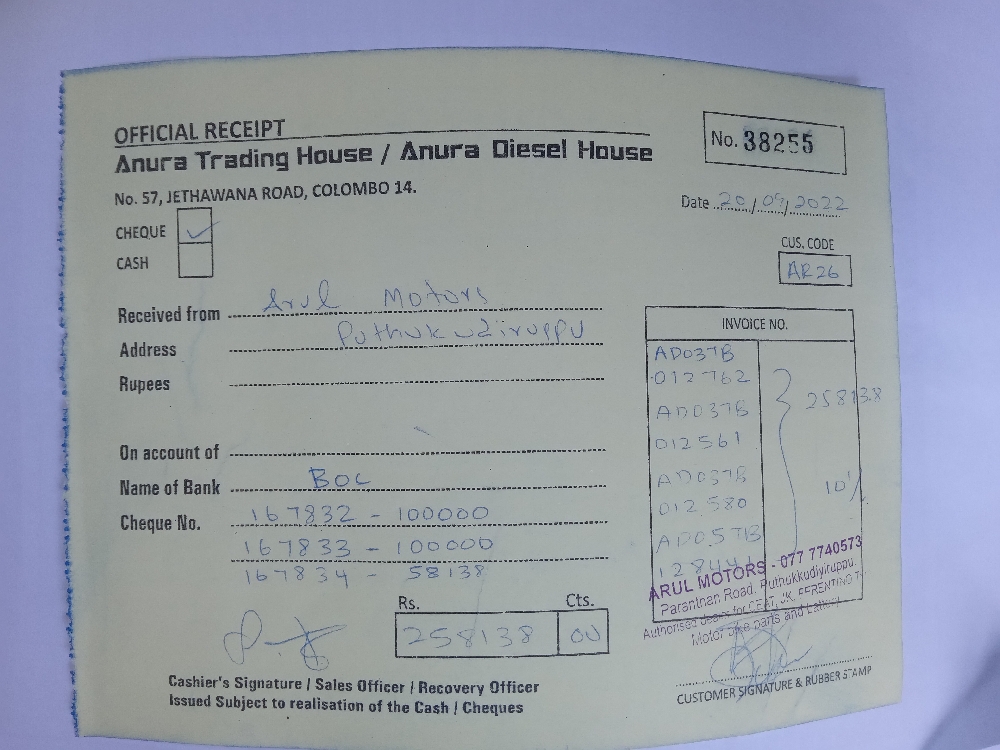 OFFICIAL RECEIPT
Anura Trading House / Anura Diesel House
No. 57, JETHAWANA ROAD, COLOMBO 14.
No. 38255
Date 20/09/2022
CHEQUE ✓
CASH
CUS. CODE
AR26
Received from Arul Motors
Address Puthukudiruppu
Rupees
On account of
Name of Bank BOC
Cheque No. 167832 - 100000
167833 - 100000
167834 - 58138
Rs. Cts.
258138 00
INVOICE NO.
AD037B
012762
AD037B
012561
AD037B
012580
AD057B
258138
ARUL MOTORS - 077 7740573
Paranthan Road, Puthukkudiyiruppu.
Motor bike parts and
Cashier's Signature / Sales Officer / Recovery Officer
Issued Subject to realisation of the Cash / Cheques
CUSTOMER SIGNATURE & RUBBER STAMP